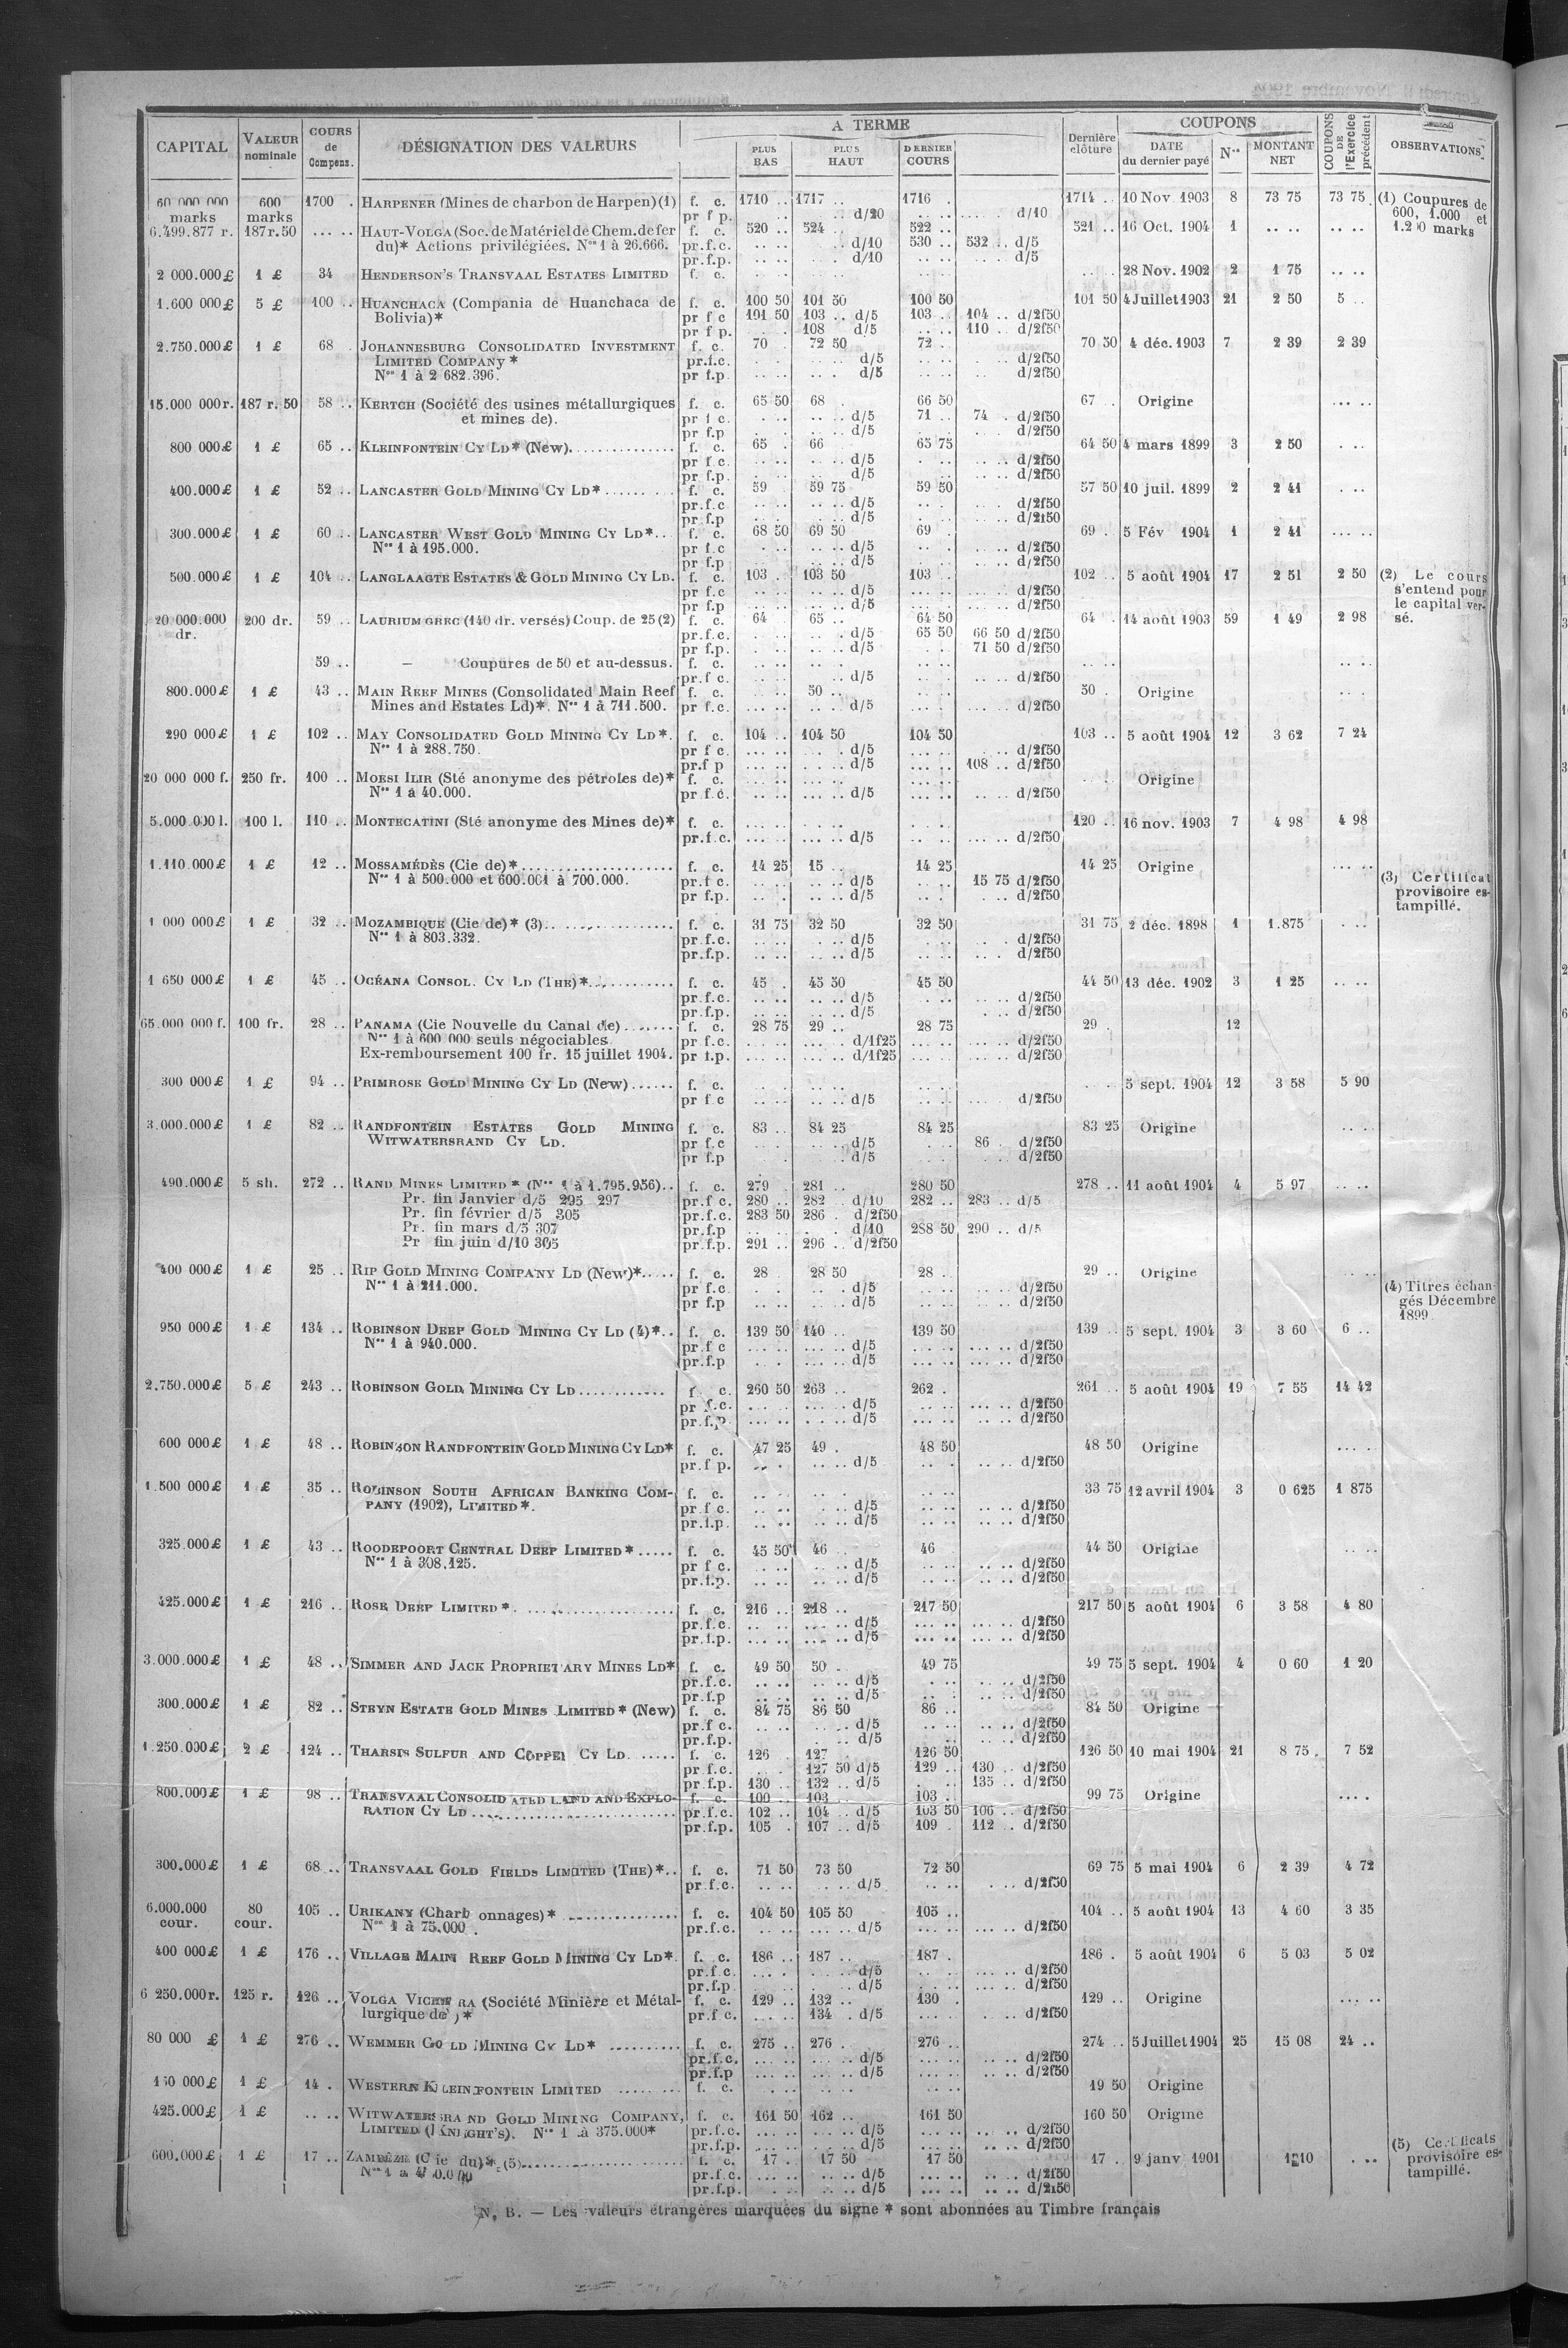 CAPITAL VALEUR nominale COURS de Compens. DÉSIGNATION DES VALEURS A TERME PLUS BAS PLUS HAUT DERNIER COURS Dernière clôture COUPONS DATE du dernier payé Nos MONTANT NET COUPONS DE l'Exercice précédent OBSERVATIONS
60 000 000 600 1700 . HARPENER (Mines de charbon de Harpen)(1) f. c. 1710 .. 1717 .. 1716 . 1714 .. 10 Nov 1903 8 73 75 73 75 (1) Coupures de
marks marks pr f p. .. d/20 .. .. .... . d/10 600, 1.000 et
6.499.877 r. 187r.50 ... .. HAUT-VOLGA (Soc. de Matériel de Chem. de fer f. c. 520 .. 524 .. 522 .. 521 .. 16 Oct. 1904 1 .. .. .. .. marks
du)* Actions privilégiées. Nos 1 à 26.666. pr.f.c. .. .. .. d/10 530 .. 532 .. d/5
pr.f.p. .. .. . d/10 .. .. . .. d/5
2 000.000£ 1 £ 34 HENDERSON'S TRANSVAAL ESTATES LIMITED f. c. 28 Nov. 1902 2 1 75 .. ..
1.600 000£ 5 £ 100 .. HUANCHACA (Compania de Huanchaca de f. c. 100 50 101 50 100 50 101 50 4 Juillet 1903 21 2 50 5 ..
Bolivia)* pr f c 101 50 103 .. d/5 103 .. 104 .. d/2f50
pr f p. 108 d/5 .. .. 110 .. d/2f50
2.750.000£ 1 £ 68 . JOHANNESBURG CONSOLIDATED INVESTMENT f. c. 70 . 72 50 72 . 70 50 4 déc. 1903 7 2 39 2 39
LIMITED COMPANY * pr.f.c. d/5 d/2f50
Nos 1 à 2 682.396. pr f.p. d/5 d/2f50
15.000 000r. 187 r. 50 58 .. KERTCH (Société des usines métallurgiques f. c. 65 50 68 . 66 50 67 . Origine ... ..
et mines de). pr f c. .. .. d/5 71 .. 74 . d/2f50
pr f.p d/5 d/2f50
800 000£ 1 £ 65 .. KLEINFONTEIN CY LD* (New). f. c. 65 . 66 65 75 64 50 4 mars 1899 3 2 50
pr f c. d/5 d/2f50
pr f.p. d/5 d/2f50
400.000£ 1 £ 52 .. LANCASTER GOLD MINING CY LD* f. c. 59 59 75 59 50 57 50 10 juil. 1899 2 2 41
pr.f.c d/5 d/2f50
pr.f.p d/5 d/2f50
300.000£ 1 £ 60 .. LANCASTER WEST GOLD MINING CY LD*.. f. c. 68 50 69 50 69 . 69 . 5 Fév 1904 1 2 41 ... ..
Nos 1 à 195.000. pr f.c d/5 d/2f50
pr f.p d/5 d/2f50
500.000£ 1 £ 104 .. LANGLAAGTE ESTATES & GOLD MINING CY LD. f. c. 103 . 103 50 103 .. 102 .. 5 août 1904 17 2 51 2 50 (2) Le cours
pr f.c d/5 d/2f50 s'entend pour
pr f.p d/5 d/2f50 le capital ver-
20 000.000 200 dr. 59 .. LAURIUM GREC (140 dr. versés) Coup. de 25 (2) f. c. 64 65 .. 64 50 64 . 14 août 1903 59 1 49 2 98 sé.
dr. pr.f.c. d/5 65 50 66 50 d/2f50
pr f.p. d/5 71 50 d/2f50
59 .. — Coupures de 50 et au-dessus. f. c. .. ..
pr.f c. d/5 d/2f50
800.000£ 1 £ 43 .. MAIN REEF MINES (Consolidated Main Reef f. c. 50 .. 50 . Origine
Mines and Estates Ld)*. Nos 1 à 711.500. pr f.c. d/5 d/2f50
290 000£ 1 £ 102 .. MAY CONSOLIDATED GOLD MINING CY LD*. f. c. 104 .. 104 50 104 50 103 .. 5 août 1904 12 3 62 7 24
Nos 1 à 288.750. pr f c. d/5 d/2f50
pr.f p d/5 108 .. d/2f50
20 000 000 f. 250 fr. 100 .. MOESI ILIR (Sté anonyme des pétroles de)* f. c. Origine
Nos 1 à 40.000. pr f.c. d/5 d/2f50
5.000.000 l. 100 l. 110 .. MONTECATINI (Sté anonyme des Mines de)* f. c. 120 .. 16 nov. 1903 7 4 98 4 98
pr.f.c. d/5 d/2f50
1.110.000£ 1 £ 12 .. MOSSAMÉDÈS (Cie de)* f. c. 14 25 15 .. 14 25 14 25 Origine ... ..
Nos 1 à 500.000 et 600.001 à 700.000. pr.f c. d/5 15 75 d/2f50 (3) Certificat
pr f.p. d/5 d/2f50 provisoire es-
tampillé.
1 000 000£ 1 £ 32 .. MOZAMBIQUE (Cie de)* (3) f. c. 31 75 32 50 32 50 31 75 2 déc. 1898 1 1.875
Nos 1 à 803.332. pr.f.c. d/5 d/2f50
pr.f.p. d/5 d/2f50
1 650 000£ 1 £ 45 .. OCÉANA CONSOL. CY LD (THE)* f. c. 45 . 45 50 45 50 44 50 13 déc. 1902 3 1 25
pr.f.c. d/5 d/2f50
pr.f.p. d/5 d/2f50
65.000 000 f. 100 fr. 28 .. PANAMA (Cie Nouvelle du Canal de) f. c. 28 75 29 .. 28 75 29 . 12
Nos 1 à 600 000 seuls négociables pr f.c. d/1f25 d/2f50
Ex-remboursement 100 fr. 15 juillet 1904. pr f.p. d/1f25 d/2f50
300 000£ 1 £ 94 .. PRIMROSE GOLD MINING CY LD (New) f. c. 5 sept. 1904 12 3 58 5 90
pr f c d/5 d/2f50
3.000.000£ 1 £ 82 .. RANDFONTEIN ESTATES GOLD MINING f. c. 83 .. 84 25 84 25 83 25 Origine
WITWATERSRAND CY LD. pr f.c d/5 86 . d/2f50
pr f.p d/5 d/2f50
490.000£ 5 sh. 272 .. RAND MINES LIMITED* (Nos 1 à 1.795.956) f. c. 279 281 .. 280 50 278 .. 11 août 1904 4 5 97
Pr. fin Janvier d/5 295 297 pr.f c. 280 .. 282 d/10 282 .. 283 .. d/5
Pr. fin février d/5 305 pr.f.c. 283 50 286 . d/2f50
Pr. fin mars d/5 307 pr.f.p d/10 288 50 290 .. d/5
Pr fin juin d/10 305 pr.f.p. 291 .. 296 .. d/2f50
400 000£ 1 £ 25 .. RIP GOLD MINING COMPANY LD (New)* f. c. 28 28 50 28 . 29 .. Origine
Nos 1 à 211.000. pr f.c. d/5 d/2f50 (4) Titres échan-
pr f.p d/5 d/2f50 gés Décembre
950 000£ 1 £ 134 .. ROBINSON DEEP GOLD MINING CY LD (4)*.. f. c. 139 50 140 .. 139 50 139 .. 5 sept. 1904 3 3 60 6 .. 1899
Nos 1 à 940.000. pr.f c d/5 d/2f50
pr.f.p d/5 d/2f50
2.750.000£ 5 £ 243 .. ROBINSON GOLD MINING CY LD f c. 260 50 263 .. 262 . 261 .. 5 août 1904 19 7 55 14 42
pr f.c. d/5 d/2f50
pr.f.p. d/5 d/2f50
600 000£ 1 £ 48 .. ROBINSON RANDFONTEIN GOLD MINING CY LD* f. c. 47 25 49 . 48 50 48 50 Origine
pr.f p. d/5 d/2f50
1.500 000£ 1 £ 35 .. ROBINSON SOUTH AFRICAN BANKING COM- f. c. 33 75 12 avril 1904 3 0 625 1 875
PANY (1902), LIMITED*. pr f c. d/5 d/2f50
pr.f.p. d/5 d/2f50
325.000£ 1 £ 43 .. ROODEPOORT CENTRAL DEEP LIMITED* f. c. 45 50 46 .. 46 44 50 Origine
Nos 1 à 308,125. pr f c. d/5 d/2f50
pr.f.p. d/5 d/2f50
425.000£ 1 £ 216 .. ROSE DEEP LIMITED*. f. c. 216 .. 218 .. 217 50 217 50 5 août 1904 6 3 58 4 80
pr.f.c. d/5 d/2f50
pr.f.p. d/5 d/2f50
3.000.000£ 1 £ 48 .. SIMMER AND JACK PROPRIETARY MINES LD* f. c. 49 50 50 . 49 75 49 75 5 sept. 1904 4 0 60 1 20
pr.f.c. d/5 d/2f50
pr.f.p d/5 d/2f50
300.000£ 1 £ 82 .. STEYN ESTATE GOLD MINES LIMITED* (New) f. c. 84 75 86 50 86 .. 84 50 Origine
pr.f c. d/5 d/2f50
pr.f.p. d/5 d/2f50
1.250.000£ 2 £ 124 .. THARSIS SULFUR AND COPPER CY LD. f. c. 126 127 . 126 50 126 50 10 mai 1904 21 8 75 7 52
pr.f.c. 127 50 d/5 129 .. 130 .. d/2f50
pr.f.p. 130 .. 132 .. d/5 135 .. d/2f50
800.000£ 1 £ 98 .. TRANSVAAL CONSOLIDATED LAND AND EXPLO- f. c. 100 .. 103 .. 103 .. 99 75 Origine
RATION CY LD pr.f.c. 102 .. 104 .. d/5 103 50 106 .. d/2f50
pr.f.p. 105 . 107 .. d/5 109 . 112 .. d/2f50
300.000£ 1 £ 68 .. TRANSVAAL GOLD FIELDS LIMITED (THE)*.. f. c. 71 50 73 50 72 50 69 75 5 mai 1904 6 2 39 4 72
pr.f.c. d/5 d/2f50
6.000.000 80 105 .. URIKANY (Charbonnages)* f. c. 104 50 105 50 105 .. 104 .. 5 août 1904 13 4 60 3 35
cour. cour. Nos 1 à 75.000. pr.f.c. d/5 d/2f50
400 000£ 1 £ 176 .. VILLAGE MAIN REEF GOLD MINING CY LD*. f. c. 186 .. 187 .. 187 . 186 . 5 août 1904 6 5 03 5 02
pr.f c. d/5 d/2f50
pr.f.p d/5 d/2f50
6 250.000r. 125 r. 126 .. VOLGA VICHERA (Société Minière et Métal- f. c. 129 .. 132 .. 130 . 129 .. Origine
lurgique de)* pr.f c. 134 . d/5 d/2f50
80 000 £ 1 £ 276 .. WEMMER GOLD MINING CY LD* f. c. 275 .. 276 . 276 .. 274 .. 5 Juillet 1904 25 15 08 24 ..
pr.f.c. d/5 d/2f50
pr.f.p d/5 d/2f50
1 £ 14 . WESTERN KLEINFONTEIN LIMITED f. c. 19 50 Origine
425.000£ 1 £ .. .. WITWATERSRAND GOLD MINING COMPANY, f. c. 161 50 162 .. 161 50 160 50 Origine
LIMITED (KNIGHT'S). Nos 1 à 375.000* pr.f.c. d/5 d/2f50
pr.f.p. d/5 d/2f50 (5) Certificats
600.000£ 1 £ 17 .. ZAMBÈZE (Cie du)* (5) f. c. 17 . 17 50 17 50 17 .. 9 janv 1901 provisoire es-
pr.f.c. d/5 d/2f50 tampillé.
pr.f.p. d/5 d/2f50
N. B. — Les valeurs étrangères marquées du signe * sont abonnées au Timbre français